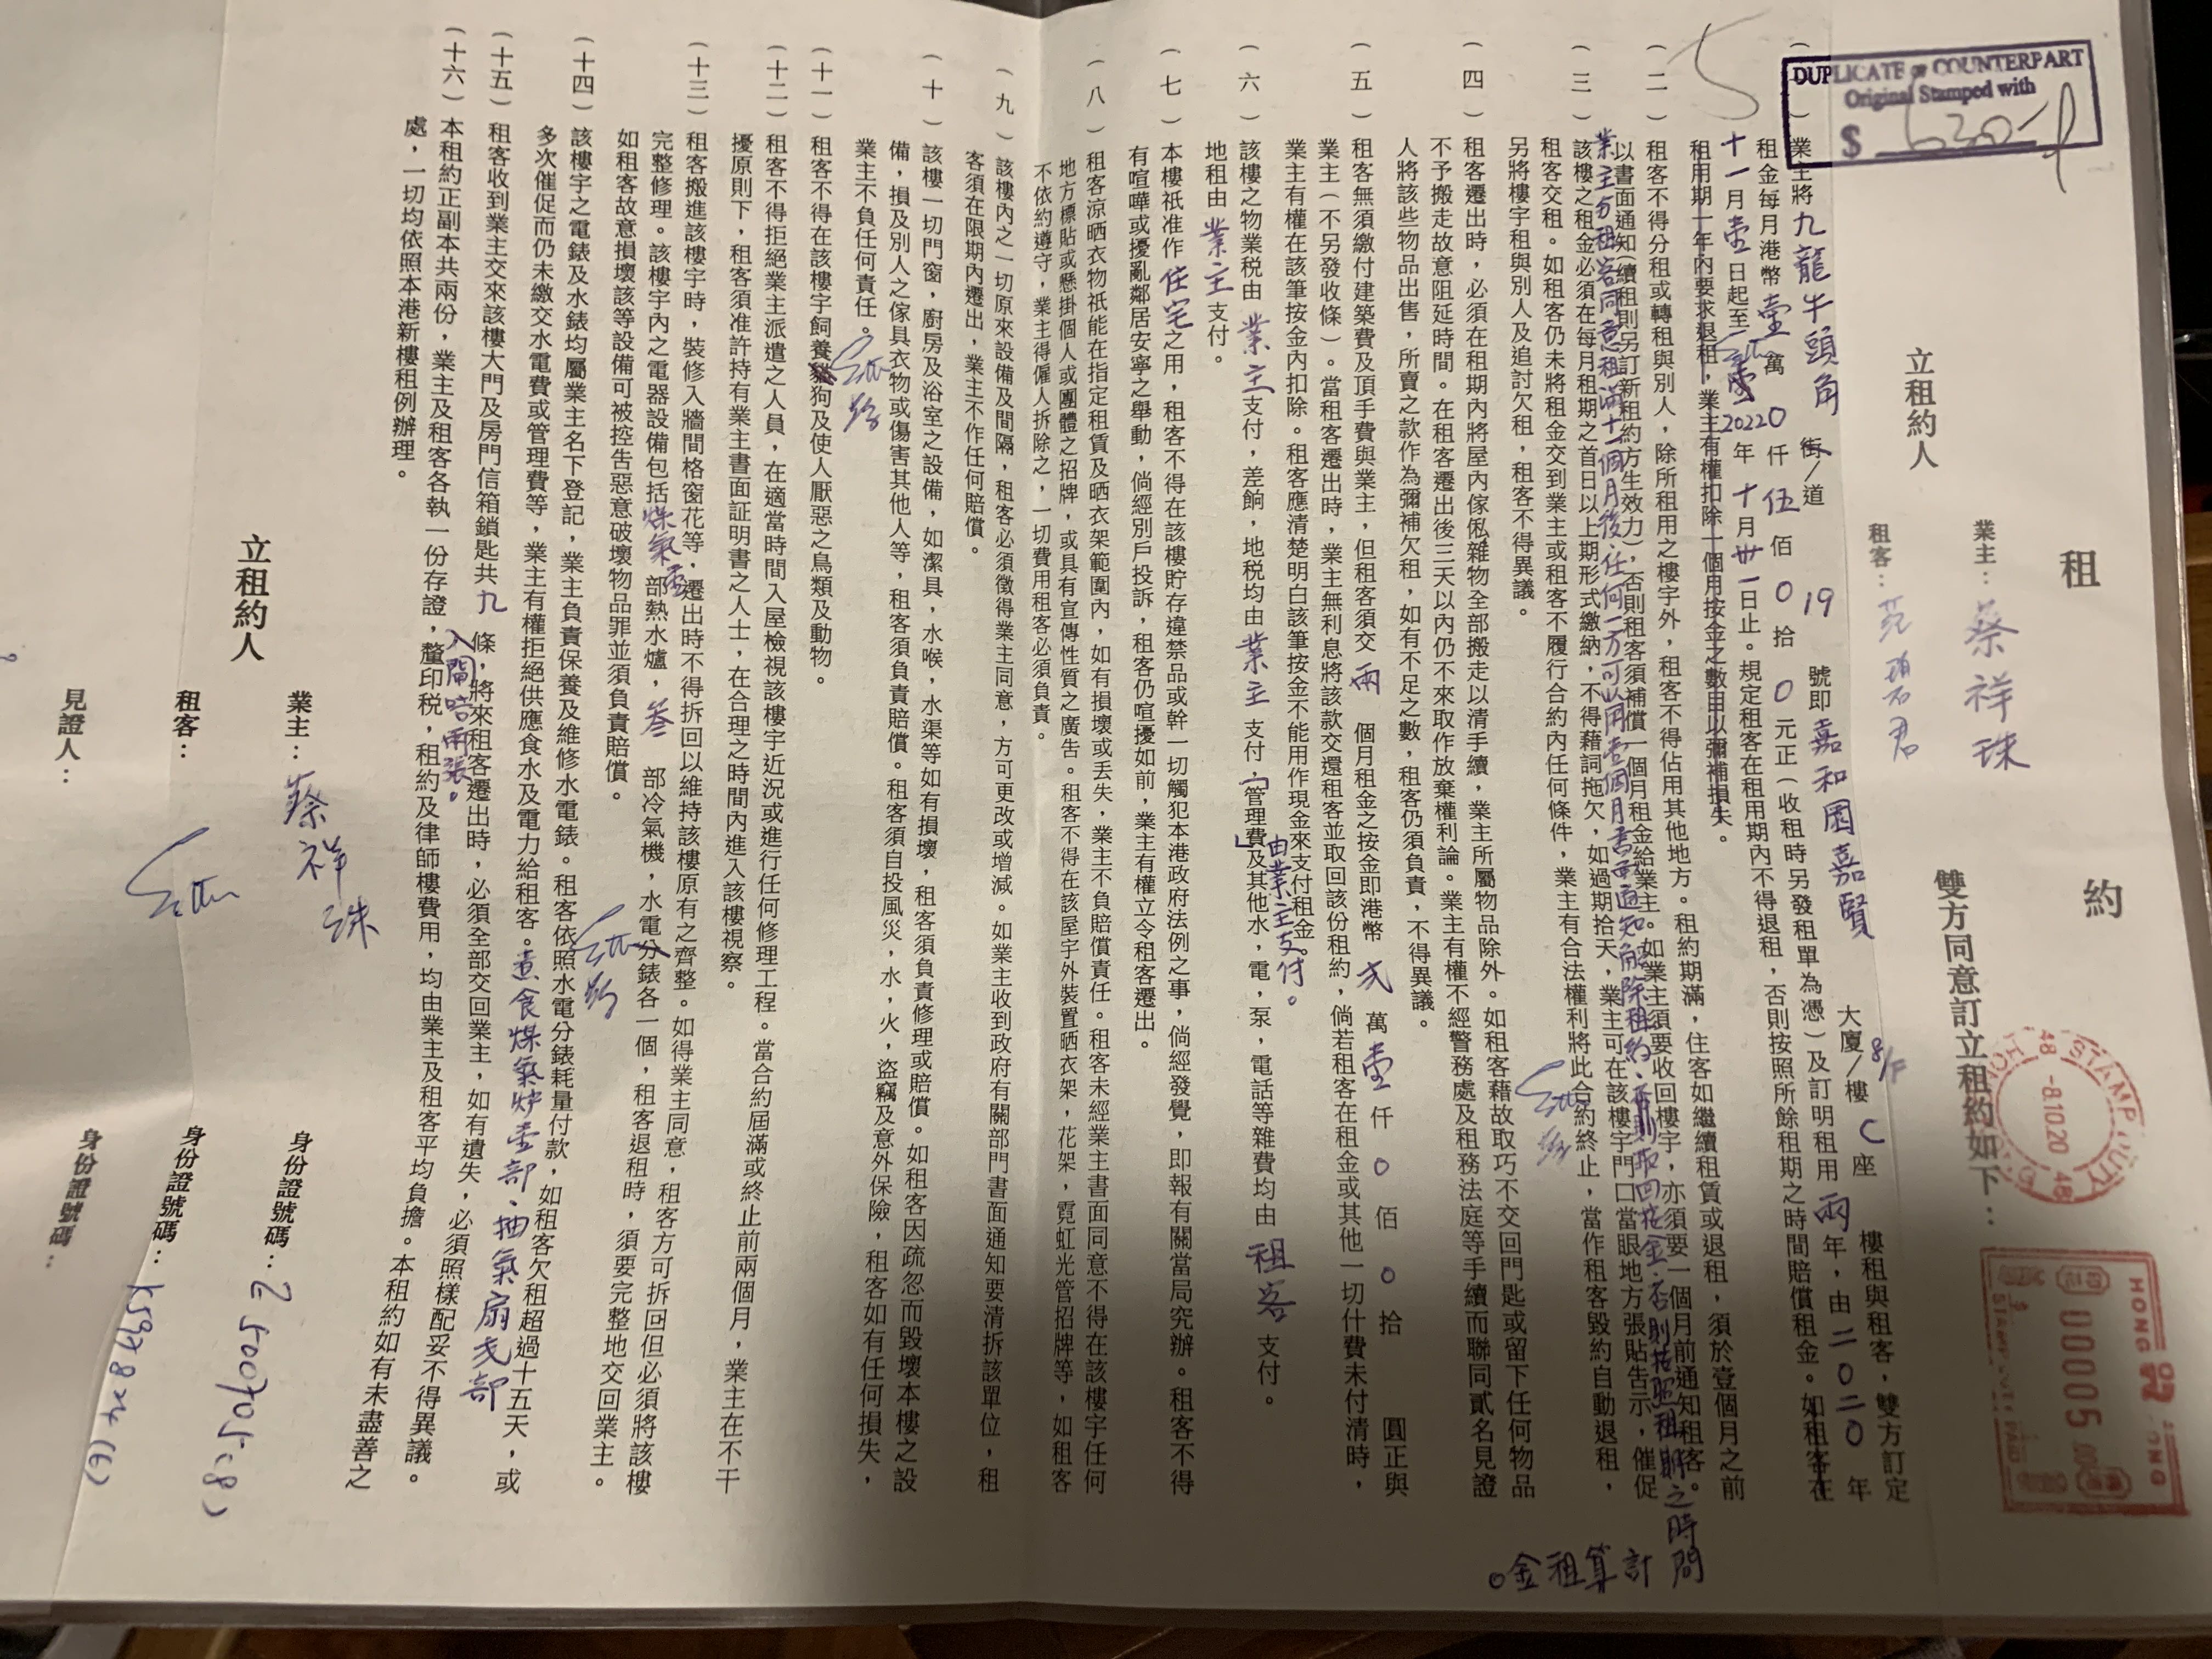 租約
業主：蔡祥珠
立租約人
雙方同意訂立租約如下：
租客：
DUPLICATE or COUNTERPART
Original Stamped with
$ 630
STAMP DUTY
-8.10.20
48
HONG KONG
00005
STAMP DUTY PAID
（一）業主將九龍牛頭角街/道19號即嘉和園嘉賢大廈/樓8/F C座樓租與租客，雙方訂定
租金每月港幣壹萬0仟伍佰0拾0元正（收租時另發租單為憑）及訂明租用兩年，由二０二０年
十一月壹日起至2022年十月卅一日止。規定租客在租用期內不得退租，否則按照所餘租期之時間賠償租金。如租客在
租用期一年內要求退租，業主有權扣除一個月按金之數目以彌補損失。
（二）租客不得分租或轉租與別人，除所租用之樓宇外，租客不得佔用其他地方。租約期滿，住客如繼續租賃或退租，須於壹個月之前
以書面通知（續租則另訂新租約方生效力），否則租客須補償一個月租金給業主。如業主須要收回樓宇，亦須要一個月前通知租客。
業主方租客同意租滿十一個月後，任何一方可以用壹個月書面通知解除租約，否則按照租期之時間計算租金。
（三）該樓之租金必須在每月租期之首日以上期形式繳納，不得藉詞拖欠，如過期拾天，業主可在該樓宇門口當眼地方張貼告示，催促
租客交租。如租客仍未將租金交到業主或租客不履行合約內任何條件，業主有合法權利將此合約終止，當作租客毀約自動退租，
另將樓宇租與別人及追討欠租，租客不得異議。
（四）租客遷出時，必須在租期內將屋內傢俬雜物全部搬走以清手續，業主所屬物品除外。如租客藉故取巧不交回門匙或留下任何物品
不予搬走故意阻延時間。在租客遷出後三天以內仍不來取作放棄權利論。業主有權不經警務處及租務法庭等手續而聯同貳名見證
人將該些物品出售，所賣之款作為彌補欠租，如有不足之數，租客仍須負責，不得異議。
（五）租客無須繳付建築費及頂手費與業主，但租客須交兩個月租金之按金即港幣弍萬壹仟0佰0拾圓正與
業主（不另發收條）。當租客遷出時，業主無利息將該款交還租客並取回該份租約，倘若租客在租金或其他一切什費未付清時，
業主有權在該筆按金內扣除。租客應清楚明白該筆按金不能用作現金來支付租金。
（六）該樓之物業稅由業主支付，差餉，地稅均由業主支付，「管理費」由業主支付。及其他水，電，泵，電話等雜費均由租客支付。
地租由業主支付。
（七）本樓祇准作住宅之用，租客不得在該樓貯存違禁品或幹一切觸犯本港政府法例之事，倘經發覺，即報有關當局究辦。租客不得
有喧嘩或擾亂鄰居安寧之舉動，倘經別戶投訴，租客仍喧擾如前，業主有權立令租客遷出。
（八）租客涼晒衣物祇能在指定租賃及晒衣架範圍內，如有損壞或丟失，業主不負賠償責任。租客未經業主書面同意不得在該樓宇任何
地方標貼或懸掛個人或團體之招牌，或具有宣傳性質之廣告。租客不得在該屋宇外裝置晒衣架，花架，霓虹光管招牌等，如租客
不依約遵守，業主得僱人拆除之，一切費用租客必須負責。
（九）該樓內之一切原來設備及間隔，租客必須徵得業主同意，方可更改或增減。如業主收到政府有關部門書面通知要清拆該單位，租
客須在限期內遷出，業主不作任何賠償。
（十）該樓一切門窗，廚房及浴室之設備，如潔具，水喉，水渠等如有損壞，租客須負責修理或賠償。如租客因疏忽而毀壞本樓之設
備，損及別人之傢具衣物或傷害其他人等，租客須負責賠償。租客須自投風災，水，火，盜竊及意外保險，租客如有任何損失，
業主不負任何責任。
（十一）租客不得在該樓宇飼養貓狗及使人厭惡之鳥類及動物。
（十二）租客不得拒絕業主派遣之人員，在適當時間入屋檢視該樓宇近況或進行任何修理工程。當合約屆滿或終止前兩個月，業主在不干
擾原則下，租客須准許持有業主書面証明書之人士，在合理之時間內進入該樓視察。
（十三）租客搬進該樓宇時，裝修入牆間格窗花等，遷出時不得拆回以維持該樓原有之齊整。如得業主同意，租客方可拆回但必須將該樓
完整修理。該樓宇內之電器設備包括煤氣壹部熱水爐，叁部冷氣機，水電分錶各一個，租客退租時，須要完整地交回業主。
如租客故意損壞該等設備可被控告惡意破壞物品罪並須負責賠償。
（十四）該樓宇之電錶及水錶均屬業主名下登記，業主負責保養及維修水電錶。租客依照水電分錶耗量付款，如租客欠租超過十五天，或
多次催促而仍未繳交水電費或管理費等，業主有權拒絕供應食水及電力給租客。煮食煤氣炉壹部，抽氣扇弍部
（十五）租客收到業主交來該樓大門及房門信箱鎖匙共九條，將來租客遷出時，必須全部交回業主，如有遺失，必須照樣配妥不得異議。
入閘咭兩張。
（十六）本租約正副本共兩份，業主及租客各執一份存證，釐印稅，租約及律師樓費用，均由業主及租客平均負擔。本租約如有未盡善之
處，一切均依照本港新樓租例辦理。
立租約人
業主：蔡祥珠
身份證號碼：
租客：
身份證號碼：
見證人：
身份證號碼：